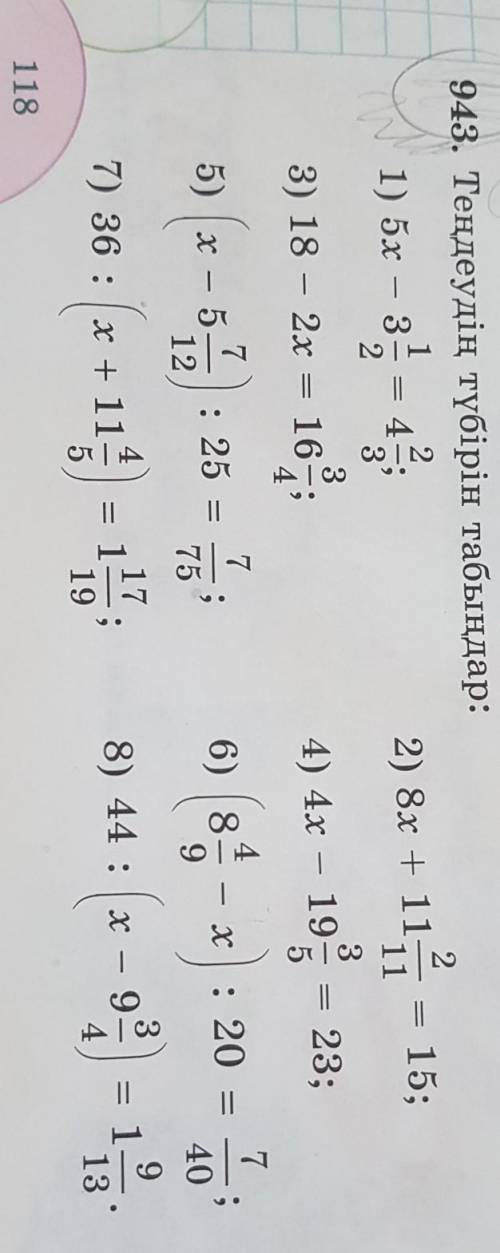 943. Теңдеудің түбірін табыңдар:
1) 5x − 3 1/2 = 4 2/3; 2) 8x + 11 2/11 = 15;
3) 18 − 2x = 16 3/4; 4) 4x − 19 3/5 = 23;
5) (x − 5 7/12) : 25 = 7/75; 6) (8 4/9 − x) : 20 = 7/40;
7) 36 : (x + 11 4/5) = 1 17/19; 8) 44 : (x − 9 3/4) = 1 9/13.
118